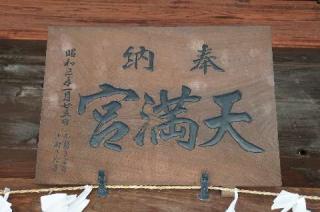 奉納
天満宮
昭和三年一月廿五日